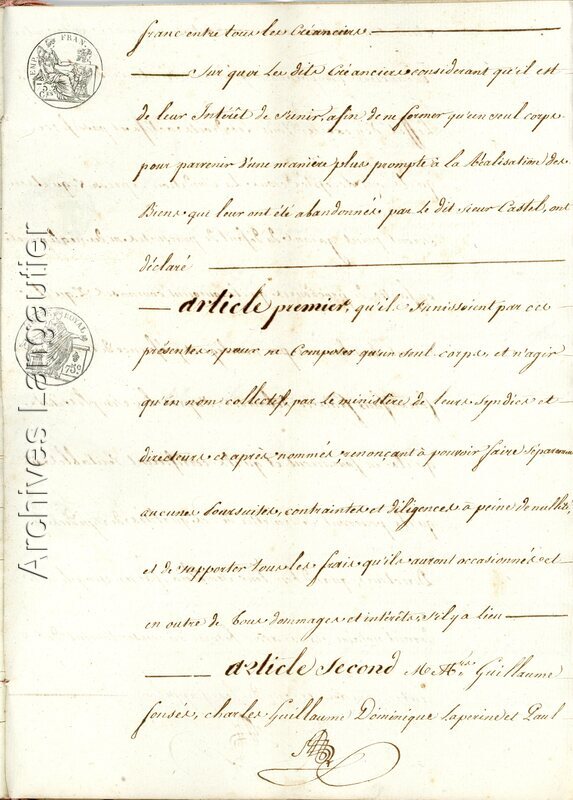 franc entre tous les Créanciers
Sur quoi les dits Créanciers considerant qu'il est
de leur Intérêt de s'unir, afin de ne former qu'un seul corps
pour parvenir d'une manière plus prompte à la Réalisation des
Biens qui leur ont été abandonnés par le dit sieur Castel, ont
déclaré
article premier, qu'ils s'unissoient par ces
présentes, pour ne Composer qu'un seul corps, et n'agir
qu'en nom collectif, par le ministère de leurs Syndics et
directeurs ci après nommés, renonçant à pouvoir faire séparement
aucunes Poursuites, contraintes et diligences à peine de nullité,
et de supporter tous les frais qu'ils auront occasionnés et
en outre de tous dommages et intérêts, s'il y a lieu
article Second M.M.rs Guillaume
charles Guillaume Dominique Laperine et Paul
EMP FRAN
ROYAL
75c
Archives Langautier